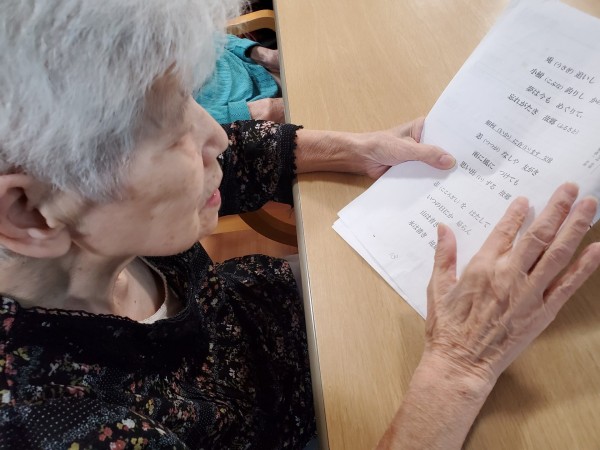 兎（うさぎ）追いし
小鮒（こぶな）釣りし か
夢は今も めぐりて、
忘れがたき 故郷（ふるさと）
如何（いか）に在（い）ます 父母
恙（つつが）なしや 友がき
雨に風に つけても
思い出（い）ずる 故郷
志（こころざし）を はたして
いつの日にか 帰らん
山は青き 故
水は清き 故